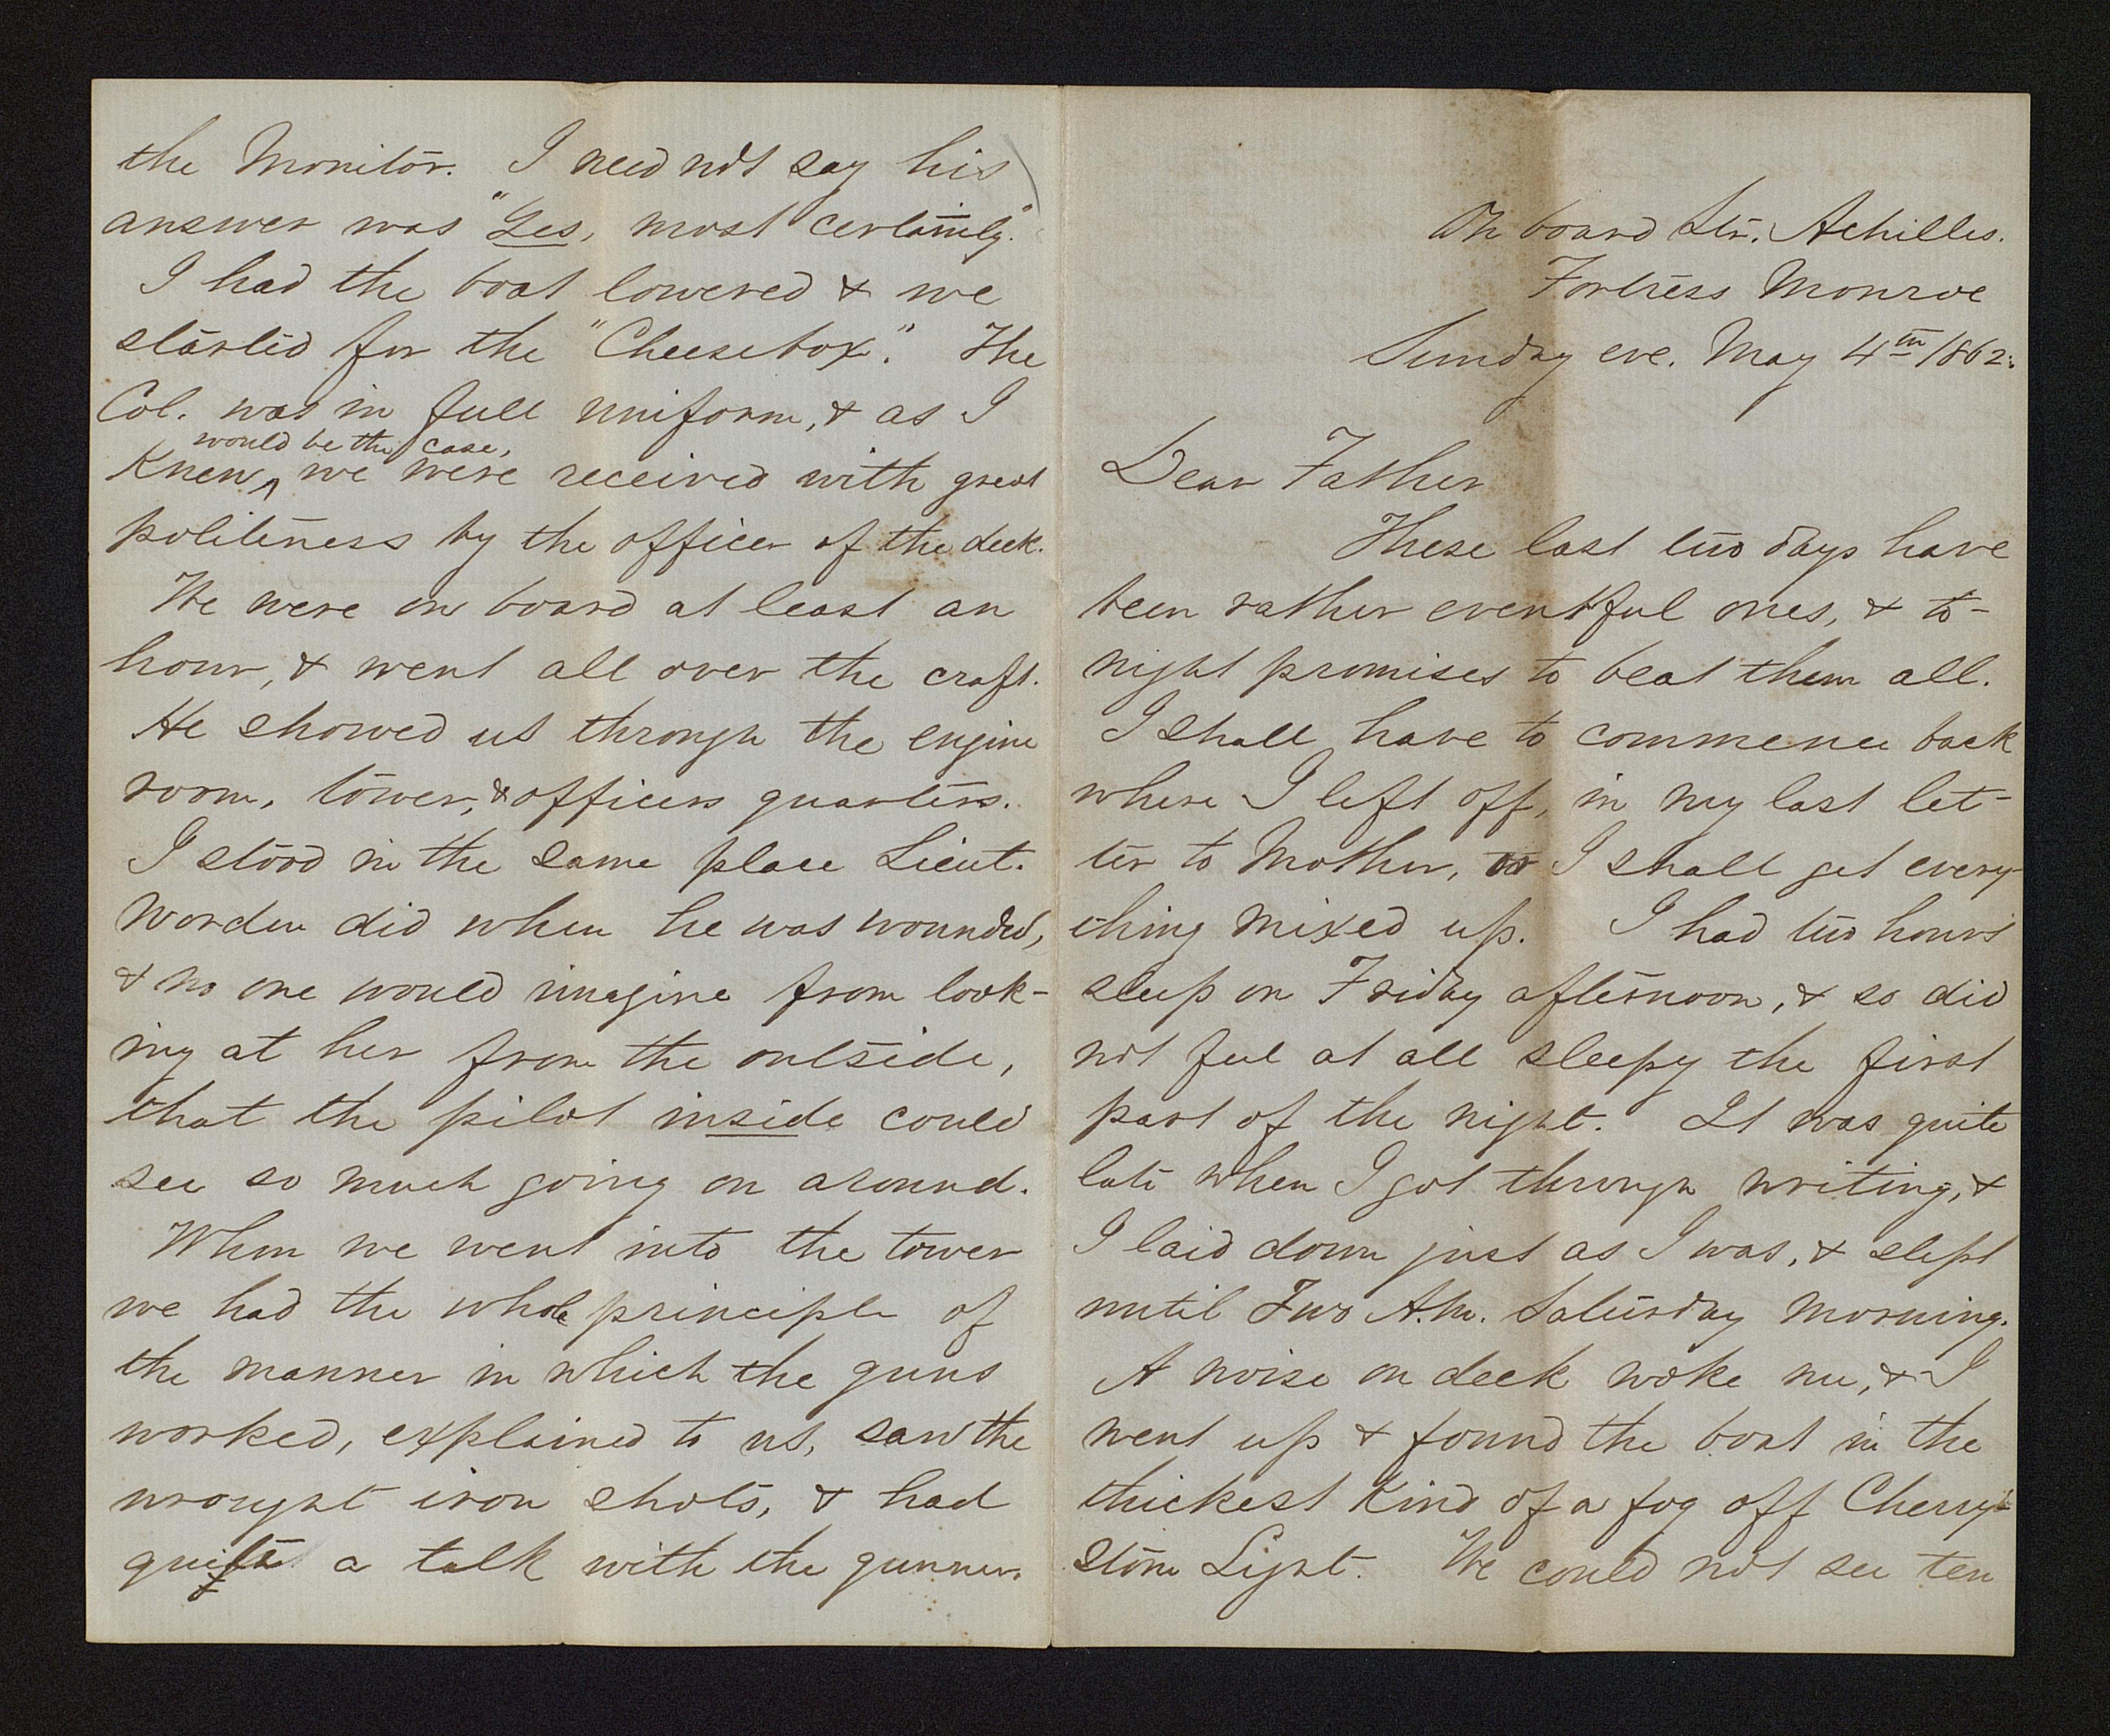 the Monitor. I need not say his
answer was "Yes, most certainly."
I had the boat lowered & we
started for the "Cheesebox". The
Col. was in full uniform, & as I
would be the case,
knew ^ we were received with great
politeness by the officer of the deck.
We were on board at least an
hour, & went all over the craft.
He showed us through the engine
room, tower, & officers quarters.
I stood in the same place Lieut.
Worden did when he was wounded,
& no one would imagine from look-
ing at her from the outside,
that the pilot inside could
see so much going on around.
When we went into the tower
we had the whole principle of
the manner in which the guns
worked, explained to us, saw the
wrought iron shots, & had
quite a talk with the gunner.
On board Str. Achilles.
Fortress Monroe
Sunday eve. May 4th 1862.
Dear Father
These last two days have
been rather eventful ones, & to-
night promises to beat them all.
I shall have to commence back
where I left off, in my last let-
ter to Mother, or I shall get every-
thing mixed up. I had two hours
sleep on Friday afternoon, & so did
not feel at all sleepy the first
part of the night. It was quite
late when I got through writing, &
I laid down just as I was, & slept
until Two A.M. Saturday morning.
A noise on deck woke me, & I
went up & found the boat in the
thickest kind of a fog off Cherry-
stone Light. We could not see ten